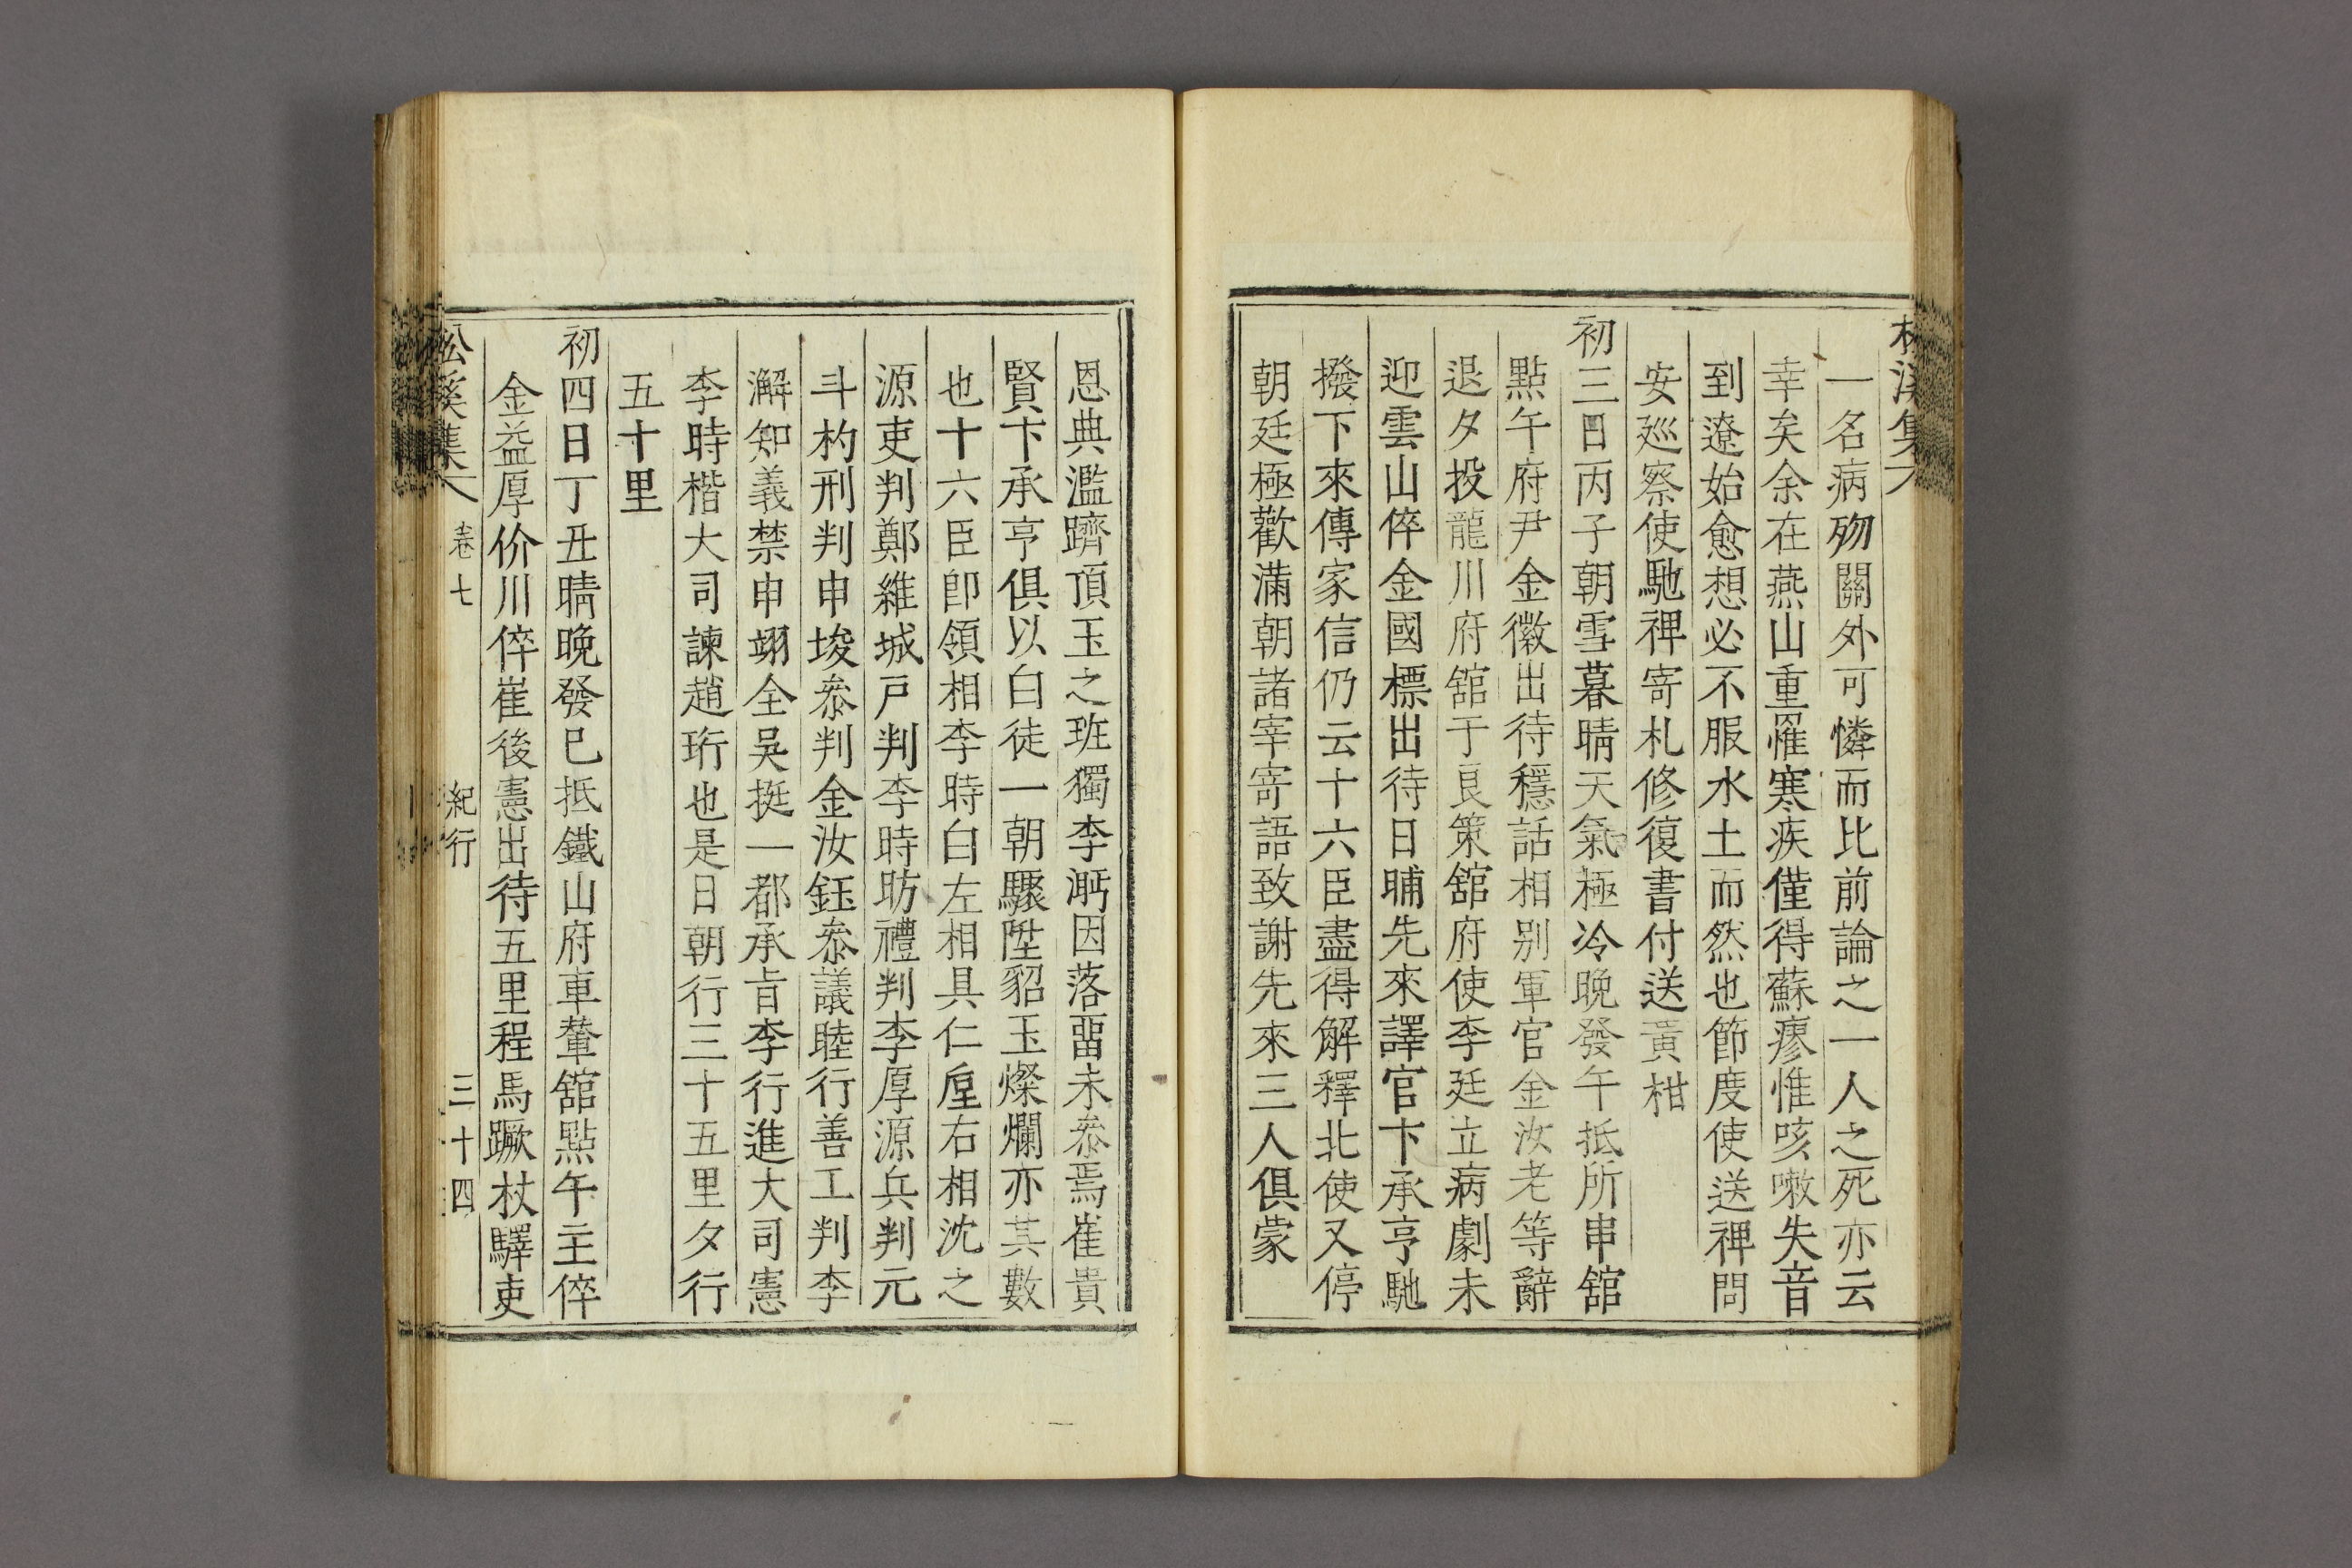 一名病歾關外可憐而比前論之一人之死亦云
幸矣余在燕山重罹寒疾僅得蘇瘳惟咳嗽失音
到遼始愈想必不服水土而然也節度使送裨問
安廵察使馳裨寄札修復書付送黃柑
初三日丙子朝雪暮晴天氣極冷晩發午抵所串舘
點午府尹金徽出待穩話相别軍官金汝老等辭
退夕投龍川府舘于良策舘府使李廷立病劇未
迎雲山倅金國標出待日晡先來譯官卞承亨馳
撥下來傳家信仍云十六臣盡得解釋北使又停
朝廷極歡滿朝諸宰寄語致謝先來三人俱蒙
恩典濫躋頂玉之班獨李沔因落畱未叅焉崔貴
賢卞承亨俱以白徒一朝驟陞貂玉燦爛亦其數
也十六臣卽領相李時白左相具仁垕右相沈之
源吏判鄭維城戸判李時昉禮判李厚源兵判元
斗杓刑判申埈叅判金汝鈺叅議睦行善工判李
澥知義禁申翊全吳挺一都承旨李行進大司憲
李時楷大司諫趙珩也是日朝行三十五里夕行
五十里
初四日丁丑晴晩發巳抵鐵山府車輦舘點午主倅
金益厚价川倅崔後憲出待五里程馬蹶杖驛吏
松溪集 卷七 紀行 三十四